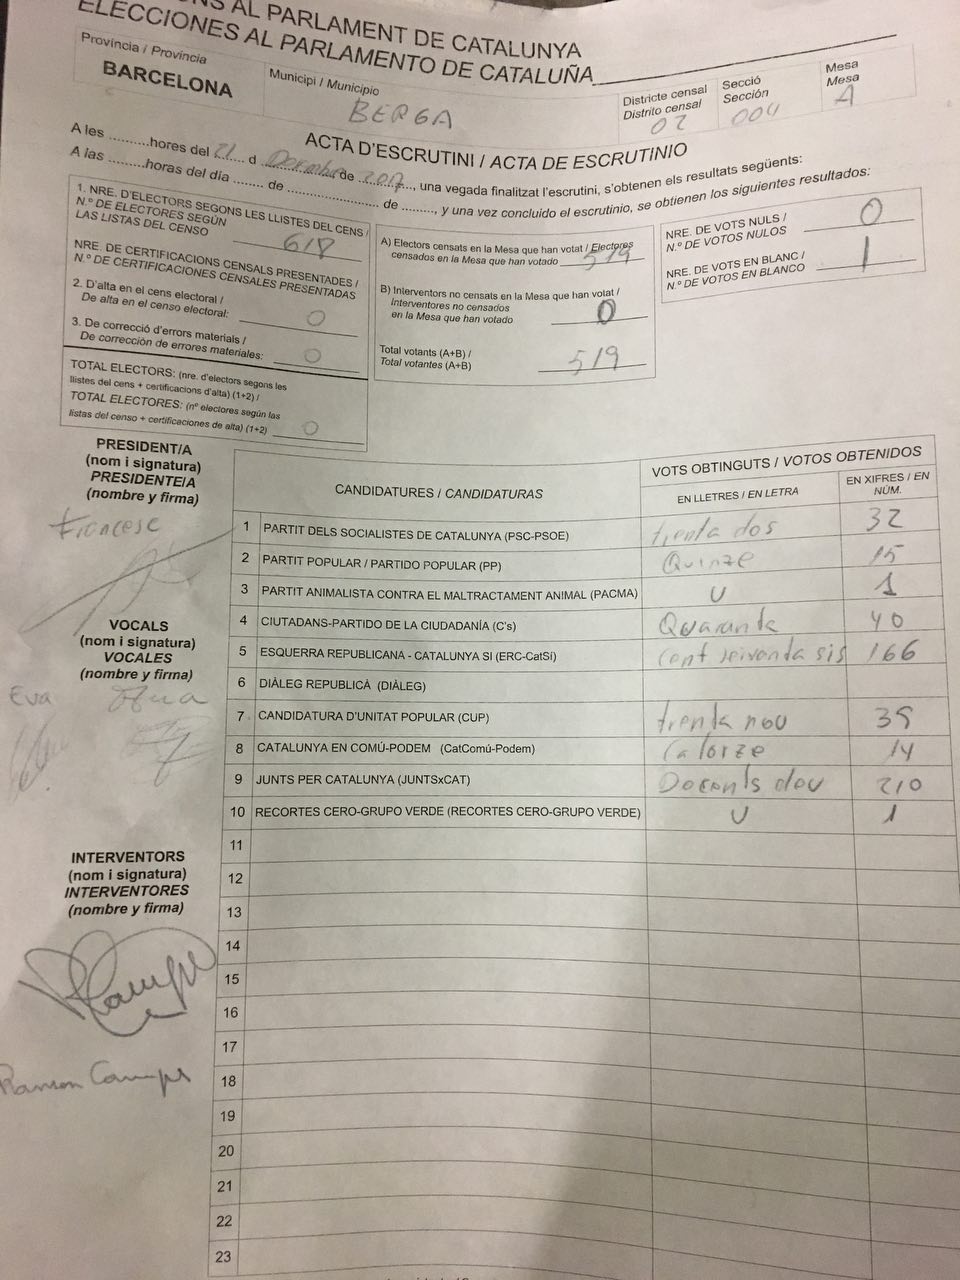 NS AL PARLAMENT DE CATALUNYA
ELECCIONES AL PARLAMENTO DE CATALUÑA
Província / Provincia
BARCELONA
Municipi / Municipio
BERGA
Districte censal
Distrito censal
02
Secció
Sección
004
Mesa
Mesa
A
ACTA D'ESCRUTINI / ACTA DE ESCRUTINIO
A les ..........hores del 21 d Desembre de 2017, una vegada finalitzat l'escrutini, s'obtenen els resultats següents:
A las ..........horas del día ........ de ........................ de ........, y una vez concluido el escrutinio, se obtienen los siguientes resultados:
1. NRE. D'ELECTORS SEGONS LES LLISTES DEL CENS /
N.º DE ELECTORES SEGÚN
LAS LISTAS DEL CENSO 618
NRE. DE CERTIFICACIONS CENSALS PRESENTADES /
N.º DE CERTIFICACIONES CENSALES PRESENTADAS
2. D'alta en el cens electoral /
De alta en el censo electoral: 0
3. De correcció d'errors materials /
De corrección de errores materiales: 0
TOTAL ELECTORS: (nre. d'electors segons les
llistes del cens + certificacions d'alta) (1+2) /
TOTAL ELECTORES: (nº electores según las
listas del censo + certificaciones de alta) (1+2) 0
A) Electors censats en la Mesa que han votat / Electores
censados en la Mesa que han votado 519
B) Interventors no censats en la Mesa que han votat /
Interventores no censados
en la Mesa que han votado 0
Total votants (A+B) /
Total votantes (A+B) 519
NRE. DE VOTS NULS /
N.º DE VOTOS NULOS 0
NRE. DE VOTS EN BLANC /
N.º DE VOTOS EN BLANCO 1
PRESIDENT/A
(nom i signatura)
PRESIDENTE/A
(nombre y firma)
Francesc
VOCALS
(nom i signatura)
VOCALES
(nombre y firma)
Eva
INTERVENTORS
(nom i signatura)
INTERVENTORES
(nombre y firma)
Ramon Camps
CANDIDATURES / CANDIDATURAS
VOTS OBTINGUTS / VOTOS OBTENIDOS
EN LLETRES / EN LETRA
EN XIFRES / EN NÚM.
1 PARTIT DELS SOCIALISTES DE CATALUNYA (PSC-PSOE) trenta dos 32
2 PARTIT POPULAR / PARTIDO POPULAR (PP) Quinze 15
3 PARTIT ANIMALISTA CONTRA EL MALTRACTAMENT ANIMAL (PACMA) U 1
4 CIUTADANS-PARTIDO DE LA CIUDADANÍA (C's) Quaranta 40
5 ESQUERRA REPUBLICANA - CATALUNYA SI (ERC-CatSí) Cent seixanta sis 166
6 DIÀLEG REPUBLICÀ (DIÀLEG)
7 CANDIDATURA D'UNITAT POPULAR (CUP) trenta nou 39
8 CATALUNYA EN COMÚ-PODEM (CatComú-Podem) Catorze 14
9 JUNTS PER CATALUNYA (JUNTSxCAT) Docents deu 210
10 RECORTES CERO-GRUPO VERDE (RECORTES CERO-GRUPO VERDE) U 1
11
12
13
14
15
16
17
18
19
20
21
22
23